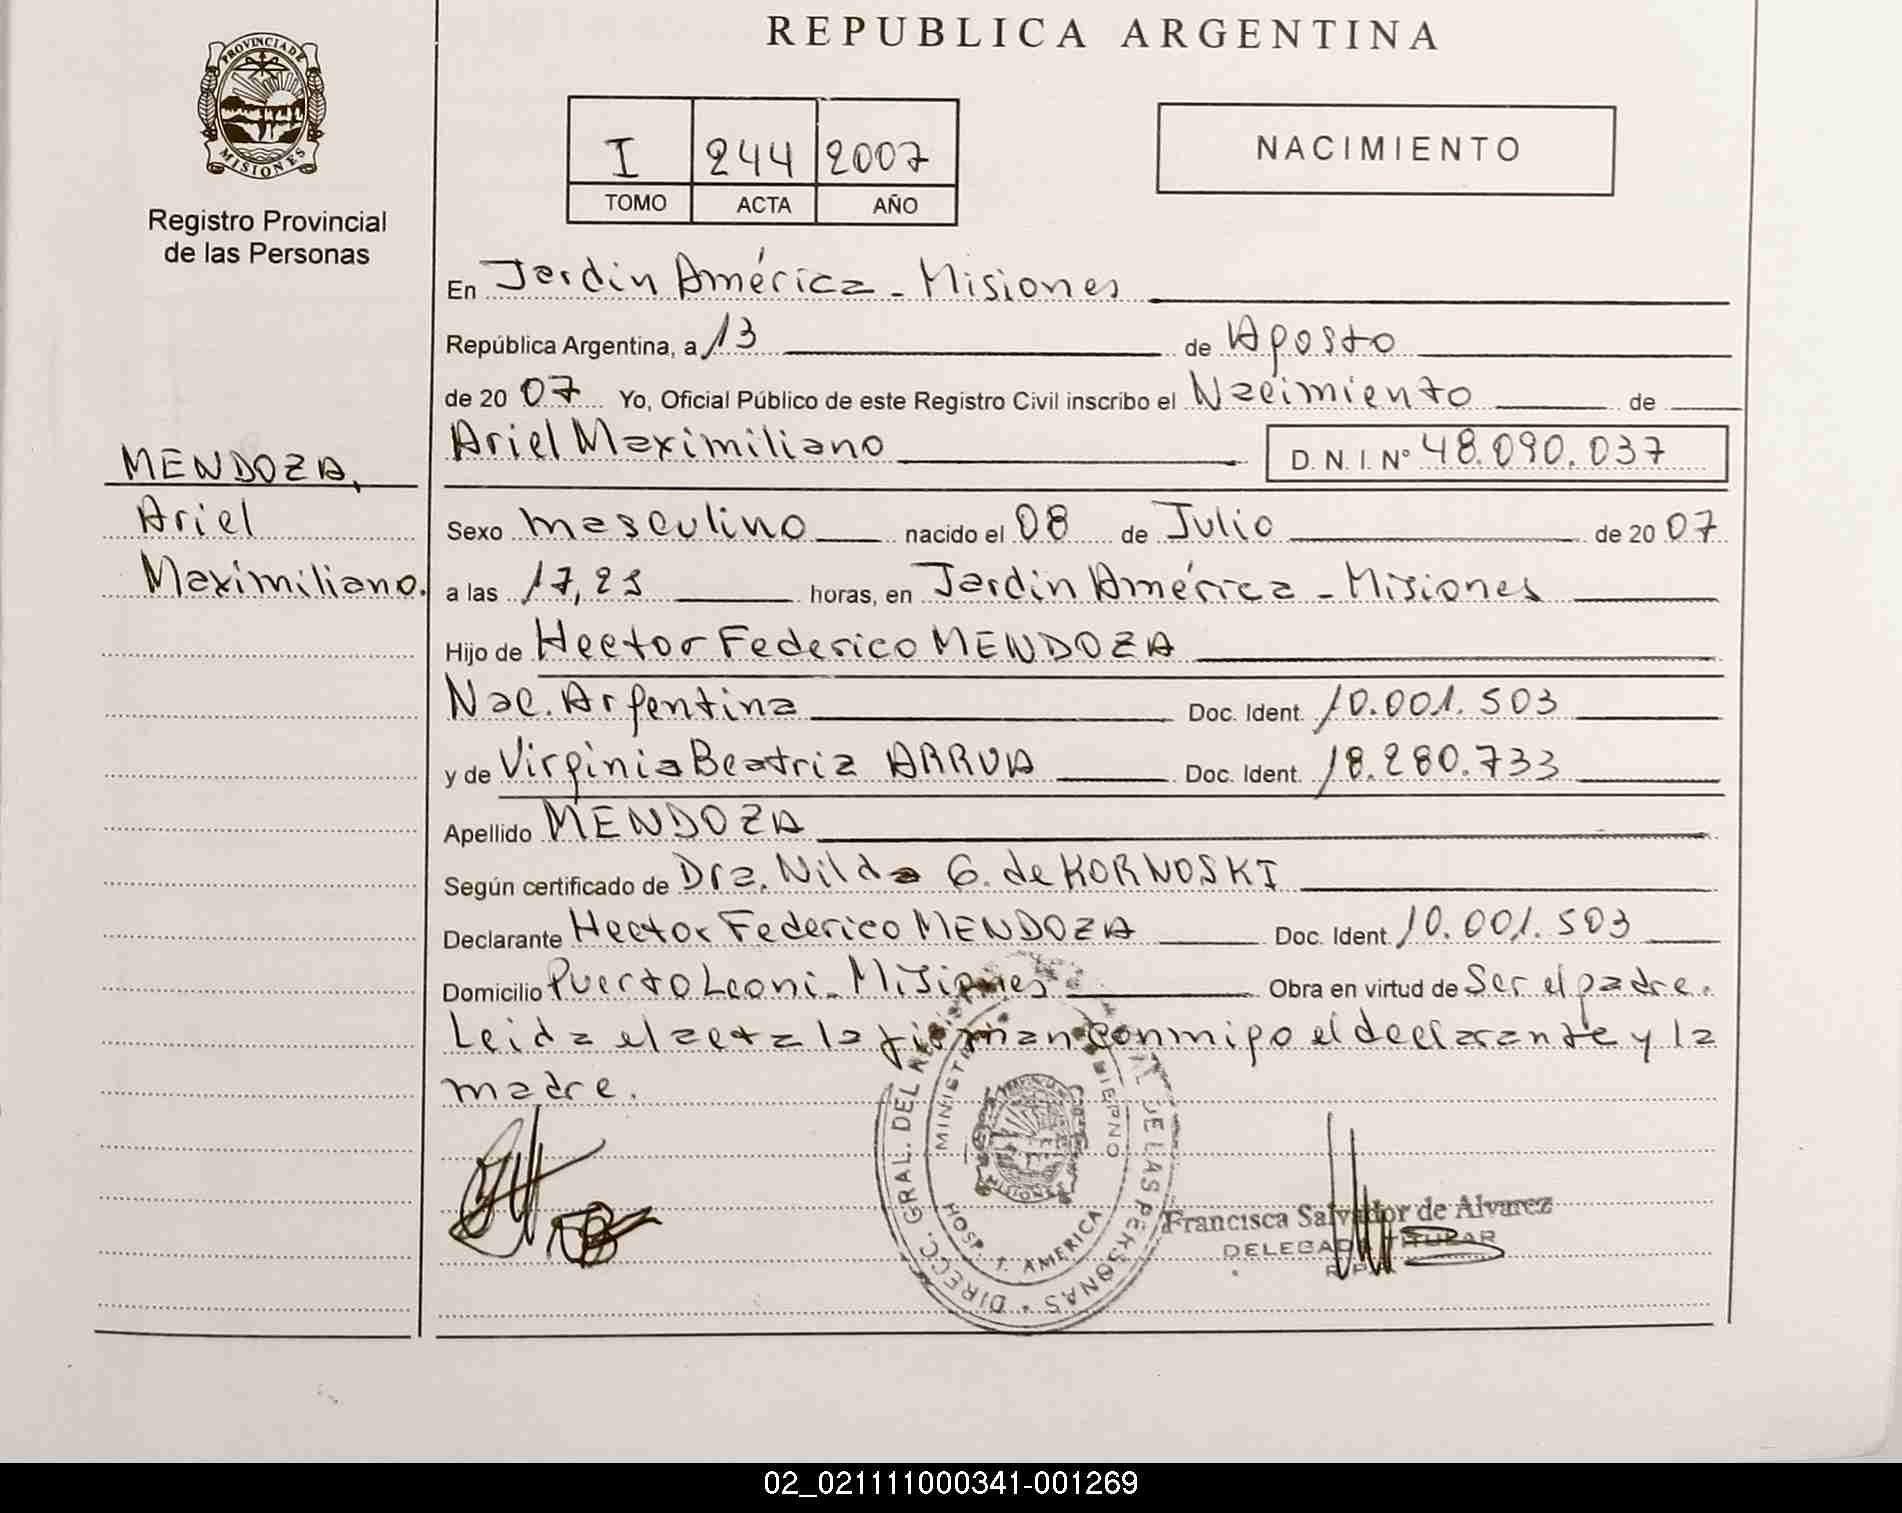 REPUBLICA ARGENTINA
PROVINCIA DE
MISIONES
Registro Provincial
de las Personas
I 244 2007
TOMO ACTA AÑO
NACIMIENTO
En Jardín América - Misiones
República Argentina, a 13 de Agosto
de 20 07 Yo, Oficial Público de este Registro Civil inscribo el Nacimiento de
Ariel Maximiliano D.N.I. Nº 48.090.037
MENDOZA,
Ariel
Maximiliano.
Sexo masculino nacido el 08 de Julio de 20 07
a las 17,23 horas, en Jardín América - Misiones
Hijo de Hector Federico MENDOZA
Nac. Argentina Doc. Ident. 10.001.503
y de Virginia Beatriz ARRUA Doc. Ident. 18.280.733
Apellido MENDOZA
Según certificado de Dra. Nilda G. de KORNOSKI
Declarante Hector Federico MENDOZA Doc. Ident. 10.001.503
Domicilio Puerto Leoni - Misiones Obra en virtud de Ser el padre.
Leida el acta la firman conmigo el declarante y la
madre.
DIRECC. GRAL. DEL DE LAS PERSONAS
HOSP. J. AMERICA
MISIONES
Francisca Salvador de Alvarez
DELEGADA TITULAR
02_021111000341-001269